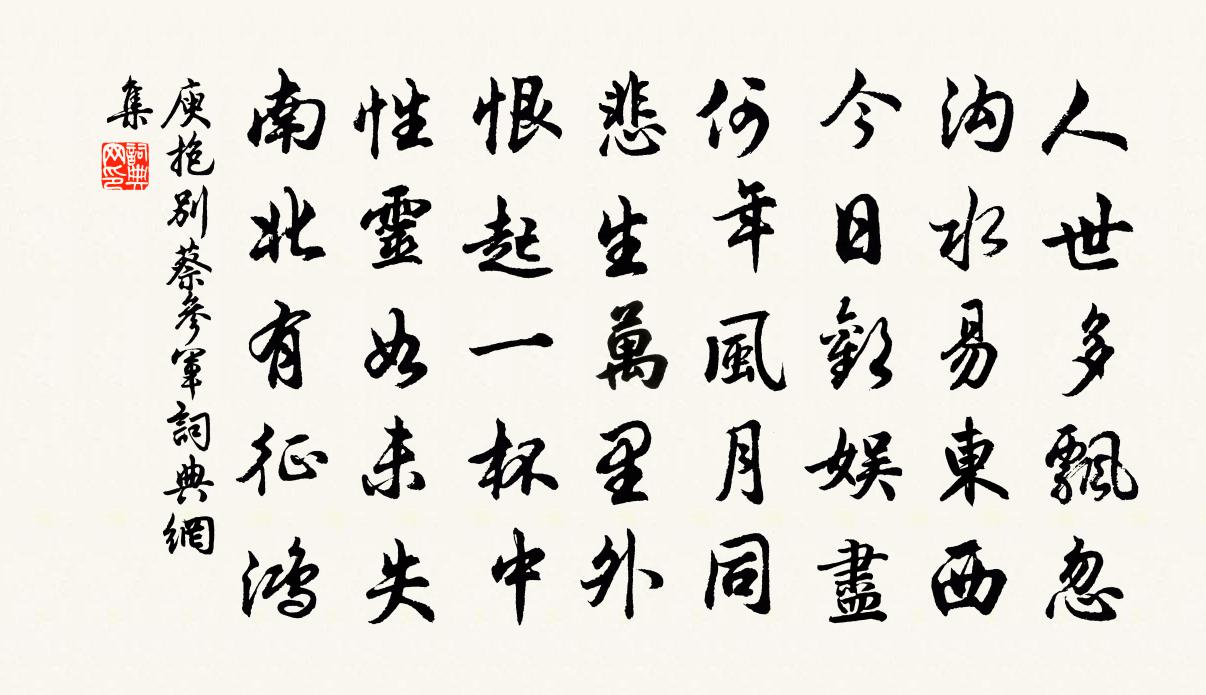 人世多飄忽
沟水易東西
今日歡娱盡
何年風月同
悲生萬里外
恨起一杯中
性靈如未失
南北有征鴻
庾抱别蔡參軍詞典網
集
詞典网印